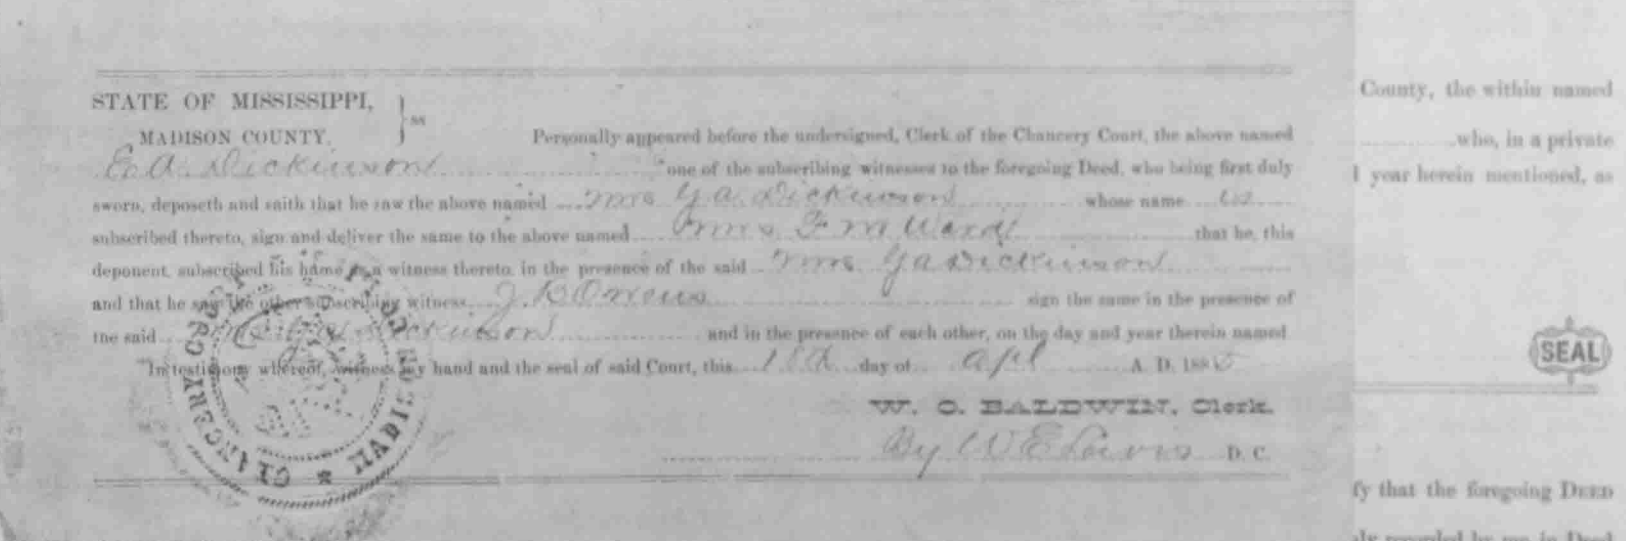 STATE OF MISSISSIPPI,
MADISON COUNTY. } ss
Personally appeared before the undersigned, Clerk of the Chancery Court, the above named
E. A. Dickinson one of the subscribing witnesses to the foregoing Deed, who being first duly
sworn, deposeth and saith that he saw the above named Mrs G. A. Dickinson whose name is
subscribed thereto, sign and deliver the same to the above named Mrs F M Ward that he, this
deponent, subscribed his name as a witness thereto, in the presence of the said Mrs G A Dickinson
and that he saw the other subscribing witness sign the same in the presence of
the said Mrs G A Dickinson and in the presence of each other, on the day and year therein named
In testimony whereof, witness my hand and the seal of said Court, this 18th day of Apl A. D. 188
W. O. BALDWIN, Clerk.
By W E Lewis D. C.
CHANCERY COURT
MADISON
County, the within named
who, in a private
year herein mentioned, as
SEAL
fy that the foregoing DEED
ly recorded by me in Deed